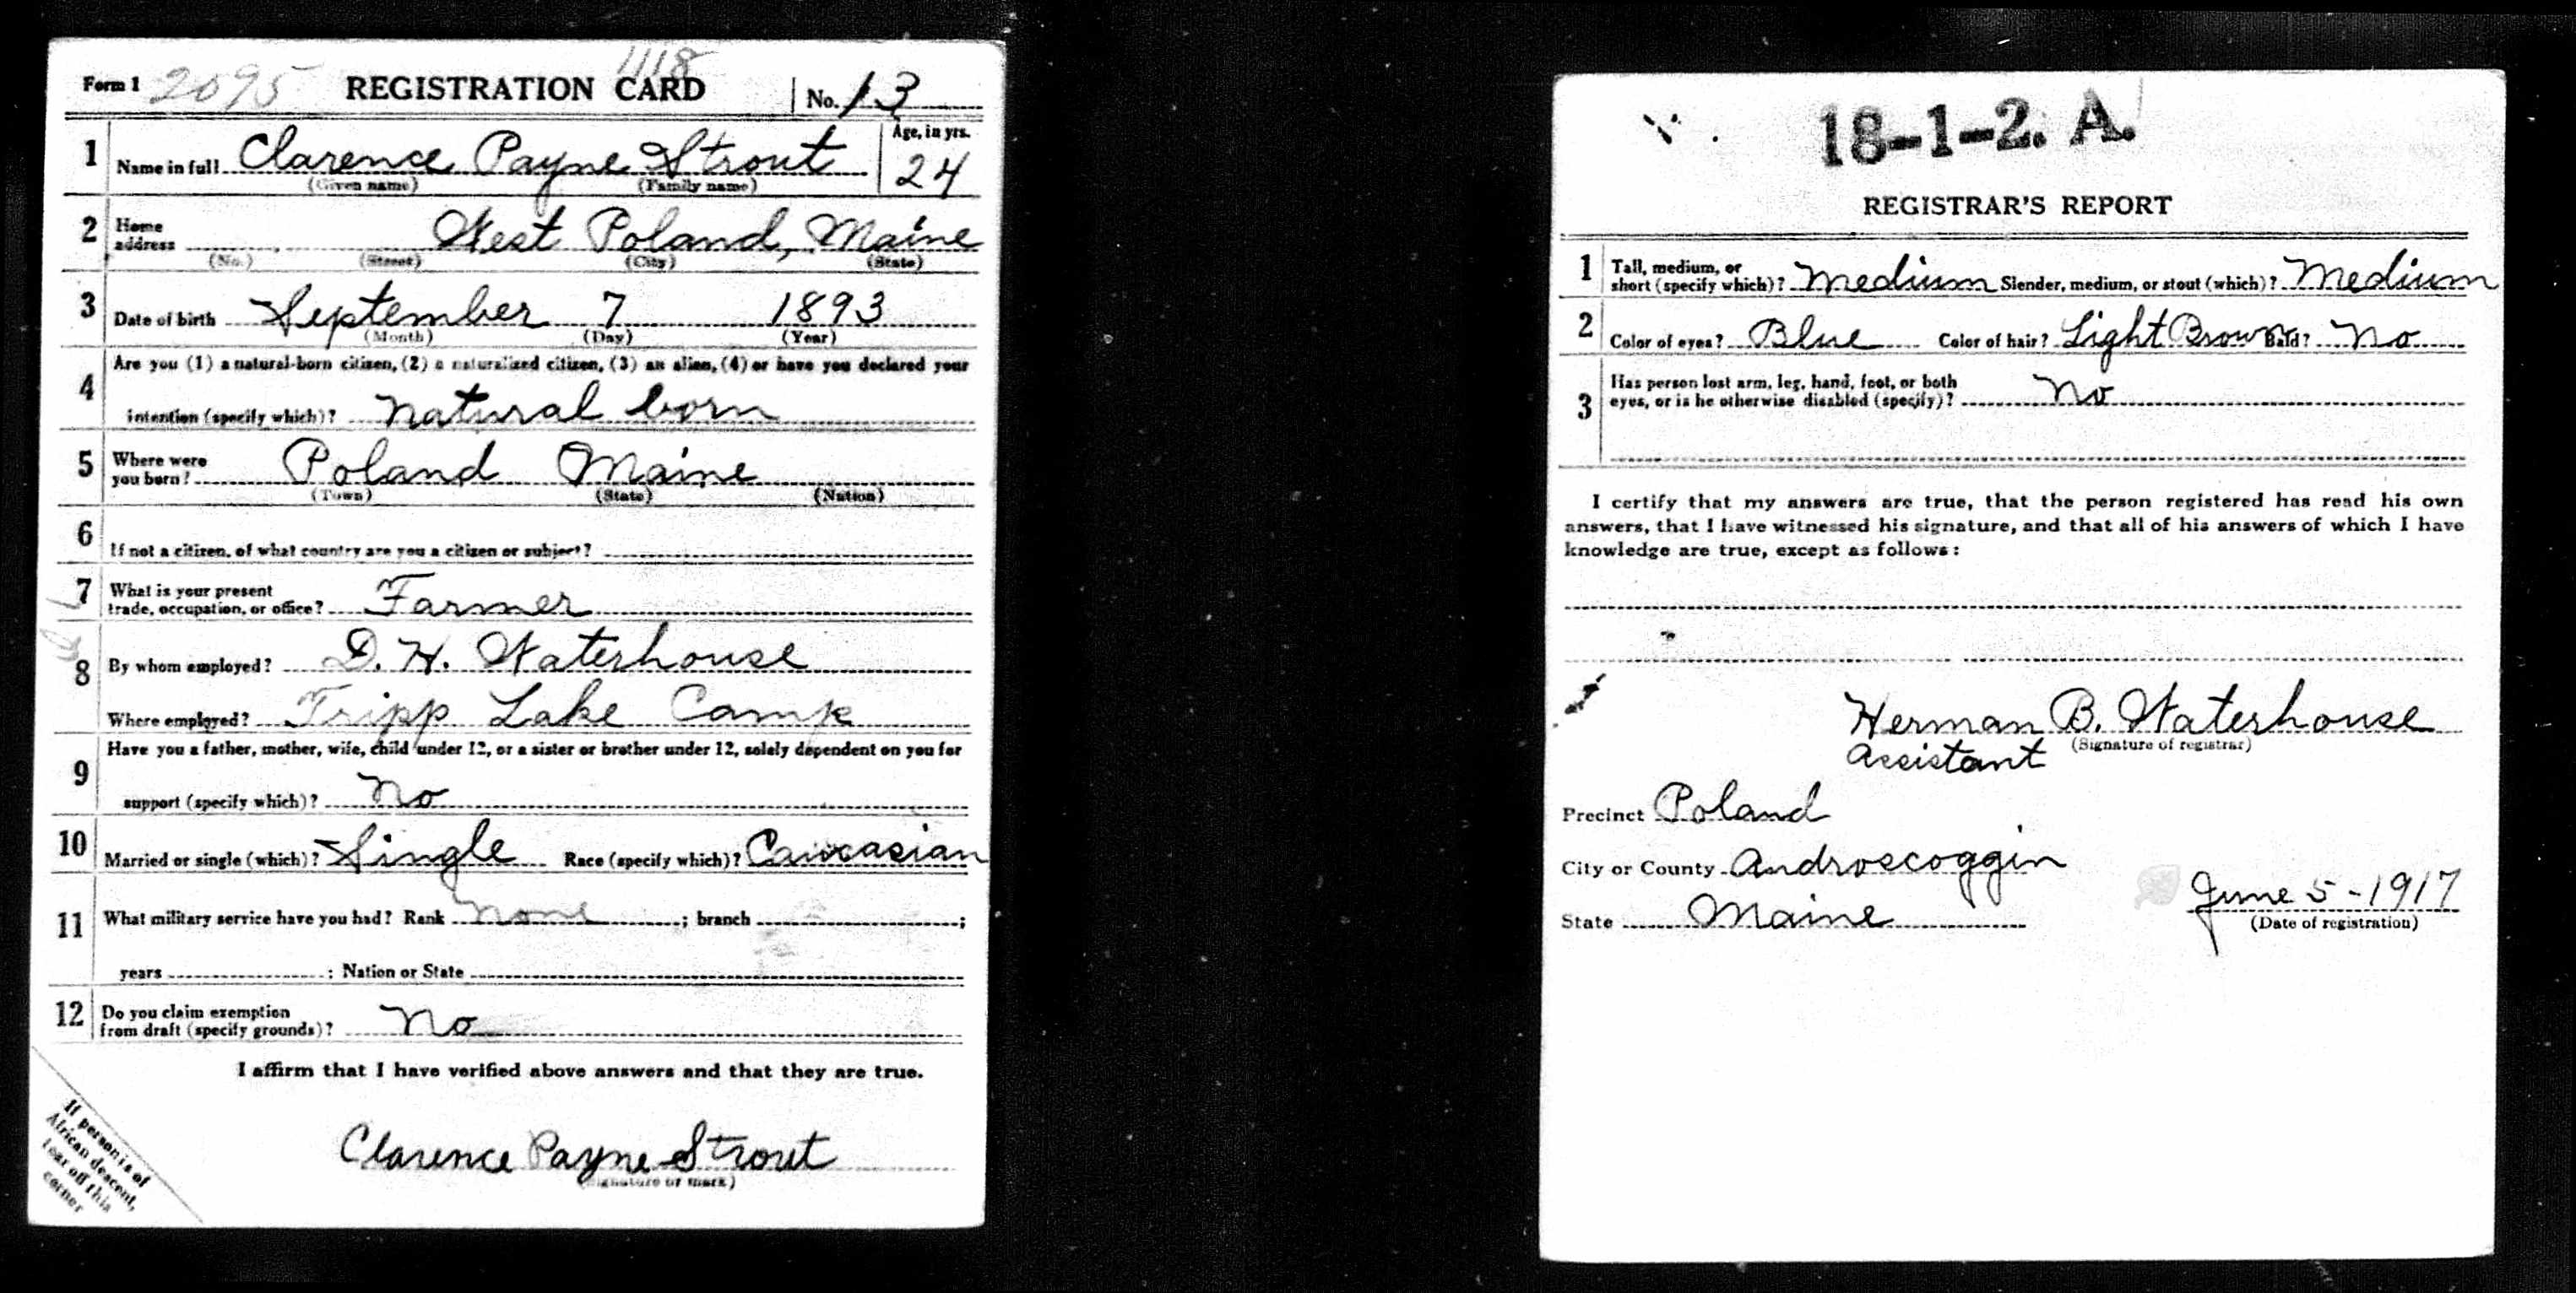 1118
Form 1 2095 REGISTRATION CARD No. 13
1 Name in full Clarence Payne Strout Age, in yrs. 24
(Given name) (Family name)
2 Home address West Poland, Maine
(No.) (Street) (City) (State)
3 Date of birth September 7 1893
(Month) (Day) (Year)
4 Are you (1) a natural-born citizen, (2) a naturalized citizen, (3) an alien, (4) or have you declared your
intention (specify which)? Natural born
5 Where were you born? Poland Maine
(Town) (State) (Nation)
6 If not a citizen, of what country are you a citizen or subject?
7 What is your present trade, occupation, or office? Farmer
8 By whom employed? D. H. Waterhouse
Where employed? Tripp Lake Camp
9 Have you a father, mother, wife, child under 12, or a sister or brother under 12, solely dependent on you for
support (specify which)? No
10 Married or single (which)? Single Race (specify which)? Caucasian
11 What military service have you had? Rank None ; branch ;
years ; Nation or State
12 Do you claim exemption from draft (specify grounds)? No
I affirm that I have verified above answers and that they are true.
Clarence Payne Strout
(Signature or mark)
If person is of
African descent,
tear off this
corner
18-1-2. A.
REGISTRAR'S REPORT
1 Tall, medium, or short (specify which)? Medium Slender, medium, or stout (which)? Medium
2 Color of eyes? Blue Color of hair? Light Brown Bald? No
3 Has person lost arm, leg, hand, foot, or both
eyes, or is he otherwise disabled (specify)? No
I certify that my answers are true, that the person registered has read his own
answers, that I have witnessed his signature, and that all of his answers of which I have
knowledge are true, except as follows:
Herman B. Waterhouse
(Signature of registrar)
Assistant
Precinct Poland
City or County Androscoggin
State Maine
June 5-1917
(Date of registration)